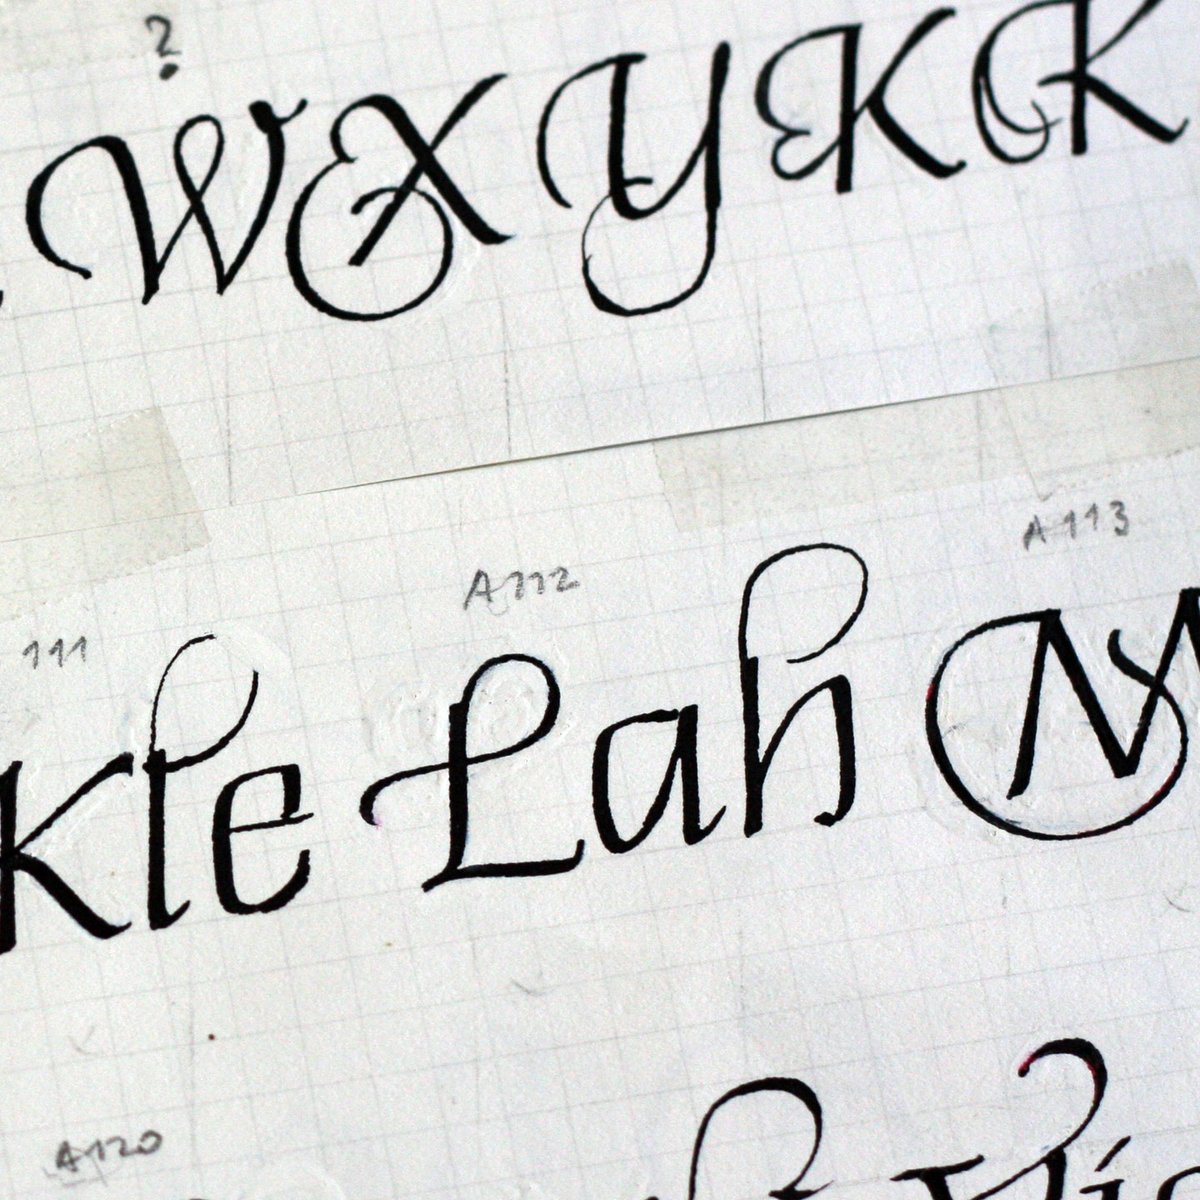 ?
W X Y K K
111 A112 A113
kle Lah N
A120